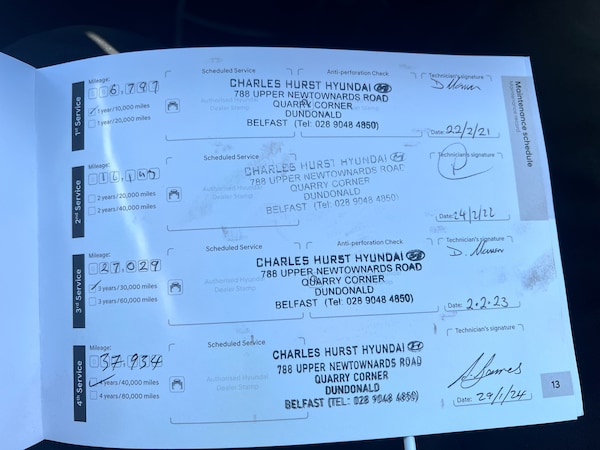 Maintenance schedule
Maintenance record
1st Service
Mileage:
6,797
1 year/10,000 miles
1 year/20,000 miles
Scheduled Service
Anti-perforation Check
Authorised Hyundai
Dealer Stamp
CHARLES HURST HYUNDAI
788 UPPER NEWTOWNARDS ROAD
QUARRY CORNER
DUNDONALD
BELFAST (Tel: 028 9048 4850)
Technician's signature
Date: 22/2/21
2nd Service
Mileage:
2 years/20,000 miles
2 years/40,000 miles
Scheduled Service
CHARLES HURST HYUNDAI
788 UPPER NEWTOWNARDS ROAD
QUARRY CORNER
DUNDONALD
BELFAST (Tel: 028 9048 4850)
Technician's signature
Date: 24/2/22
3rd Service
Mileage:
27,029
3 years/30,000 miles
3 years/60,000 miles
Scheduled Service
Anti-perforation Check
Authorised Hyundai
Dealer Stamp
CHARLES HURST HYUNDAI
788 UPPER NEWTOWNARDS ROAD
QUARRY CORNER
DUNDONALD
BELFAST (Tel: 028 9048 4850)
Technician's signature
Date: 2.2.23
4th Service
Mileage:
37,934
4 years/40,000 miles
4 years/80,000 miles
Scheduled Service
Authorised Hyundai
Dealer Stamp
CHARLES HURST HYUNDAI
788 UPPER NEWTOWNARDS ROAD
QUARRY CORNER
DUNDONALD
BELFAST (TEL: 028 9048 4850)
Technician's signature
Date: 29/1/24
13